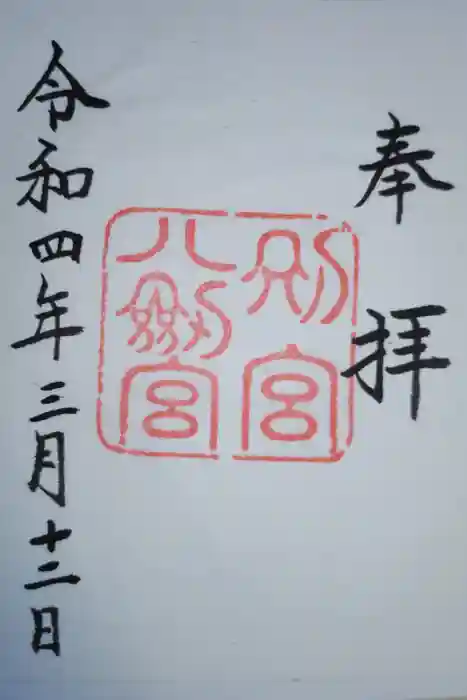 奉拝
別宮
八剣宮
令和四年三月十二日